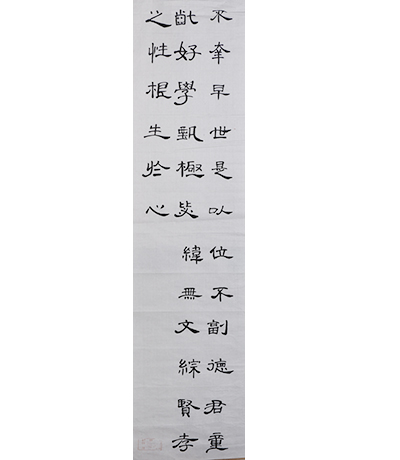 不幸早世是以位不副德君童
齔好學甄極毖緯無文綜賢孝
之性根生於心